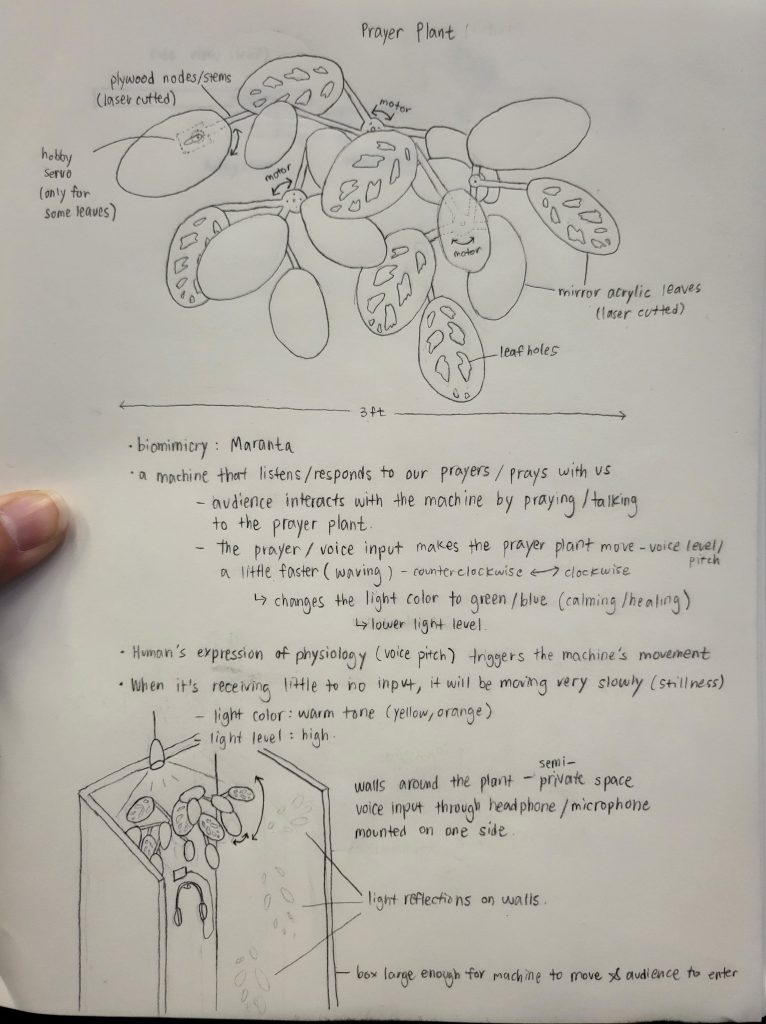 Prayer Plant
plywood nodes/stems
(laser cutted)
motor
hobby
servo
(only for
some leaves)
motor
motor
mirror acrylic leaves
(laser cutted)
leaf holes
3ft
· biomimicry : Maranta
· a machine that listens/responds to our prayers / prays with us
- audience interacts with the machine by praying/talking
to the prayer plant.
- The prayer / voice input makes the prayer plant move - voice level/
pitch
a little faster (waving) - counterclockwise ↔ clockwise
↳ changes the light color to green/blue (calming/healing)
↳ lower light level.
· Human's expression of physiology (voice pitch) triggers the machine's movement
· When it's receiving little to no input, it will be moving very slowly (stillness)
- light color: warm tone (yellow, orange)
- light level : high.
semi-
walls around the plant - private space
voice input through headphone/microphone
mounted on one side.
light reflections on walls.
box large enough for machine to move & audience to enter